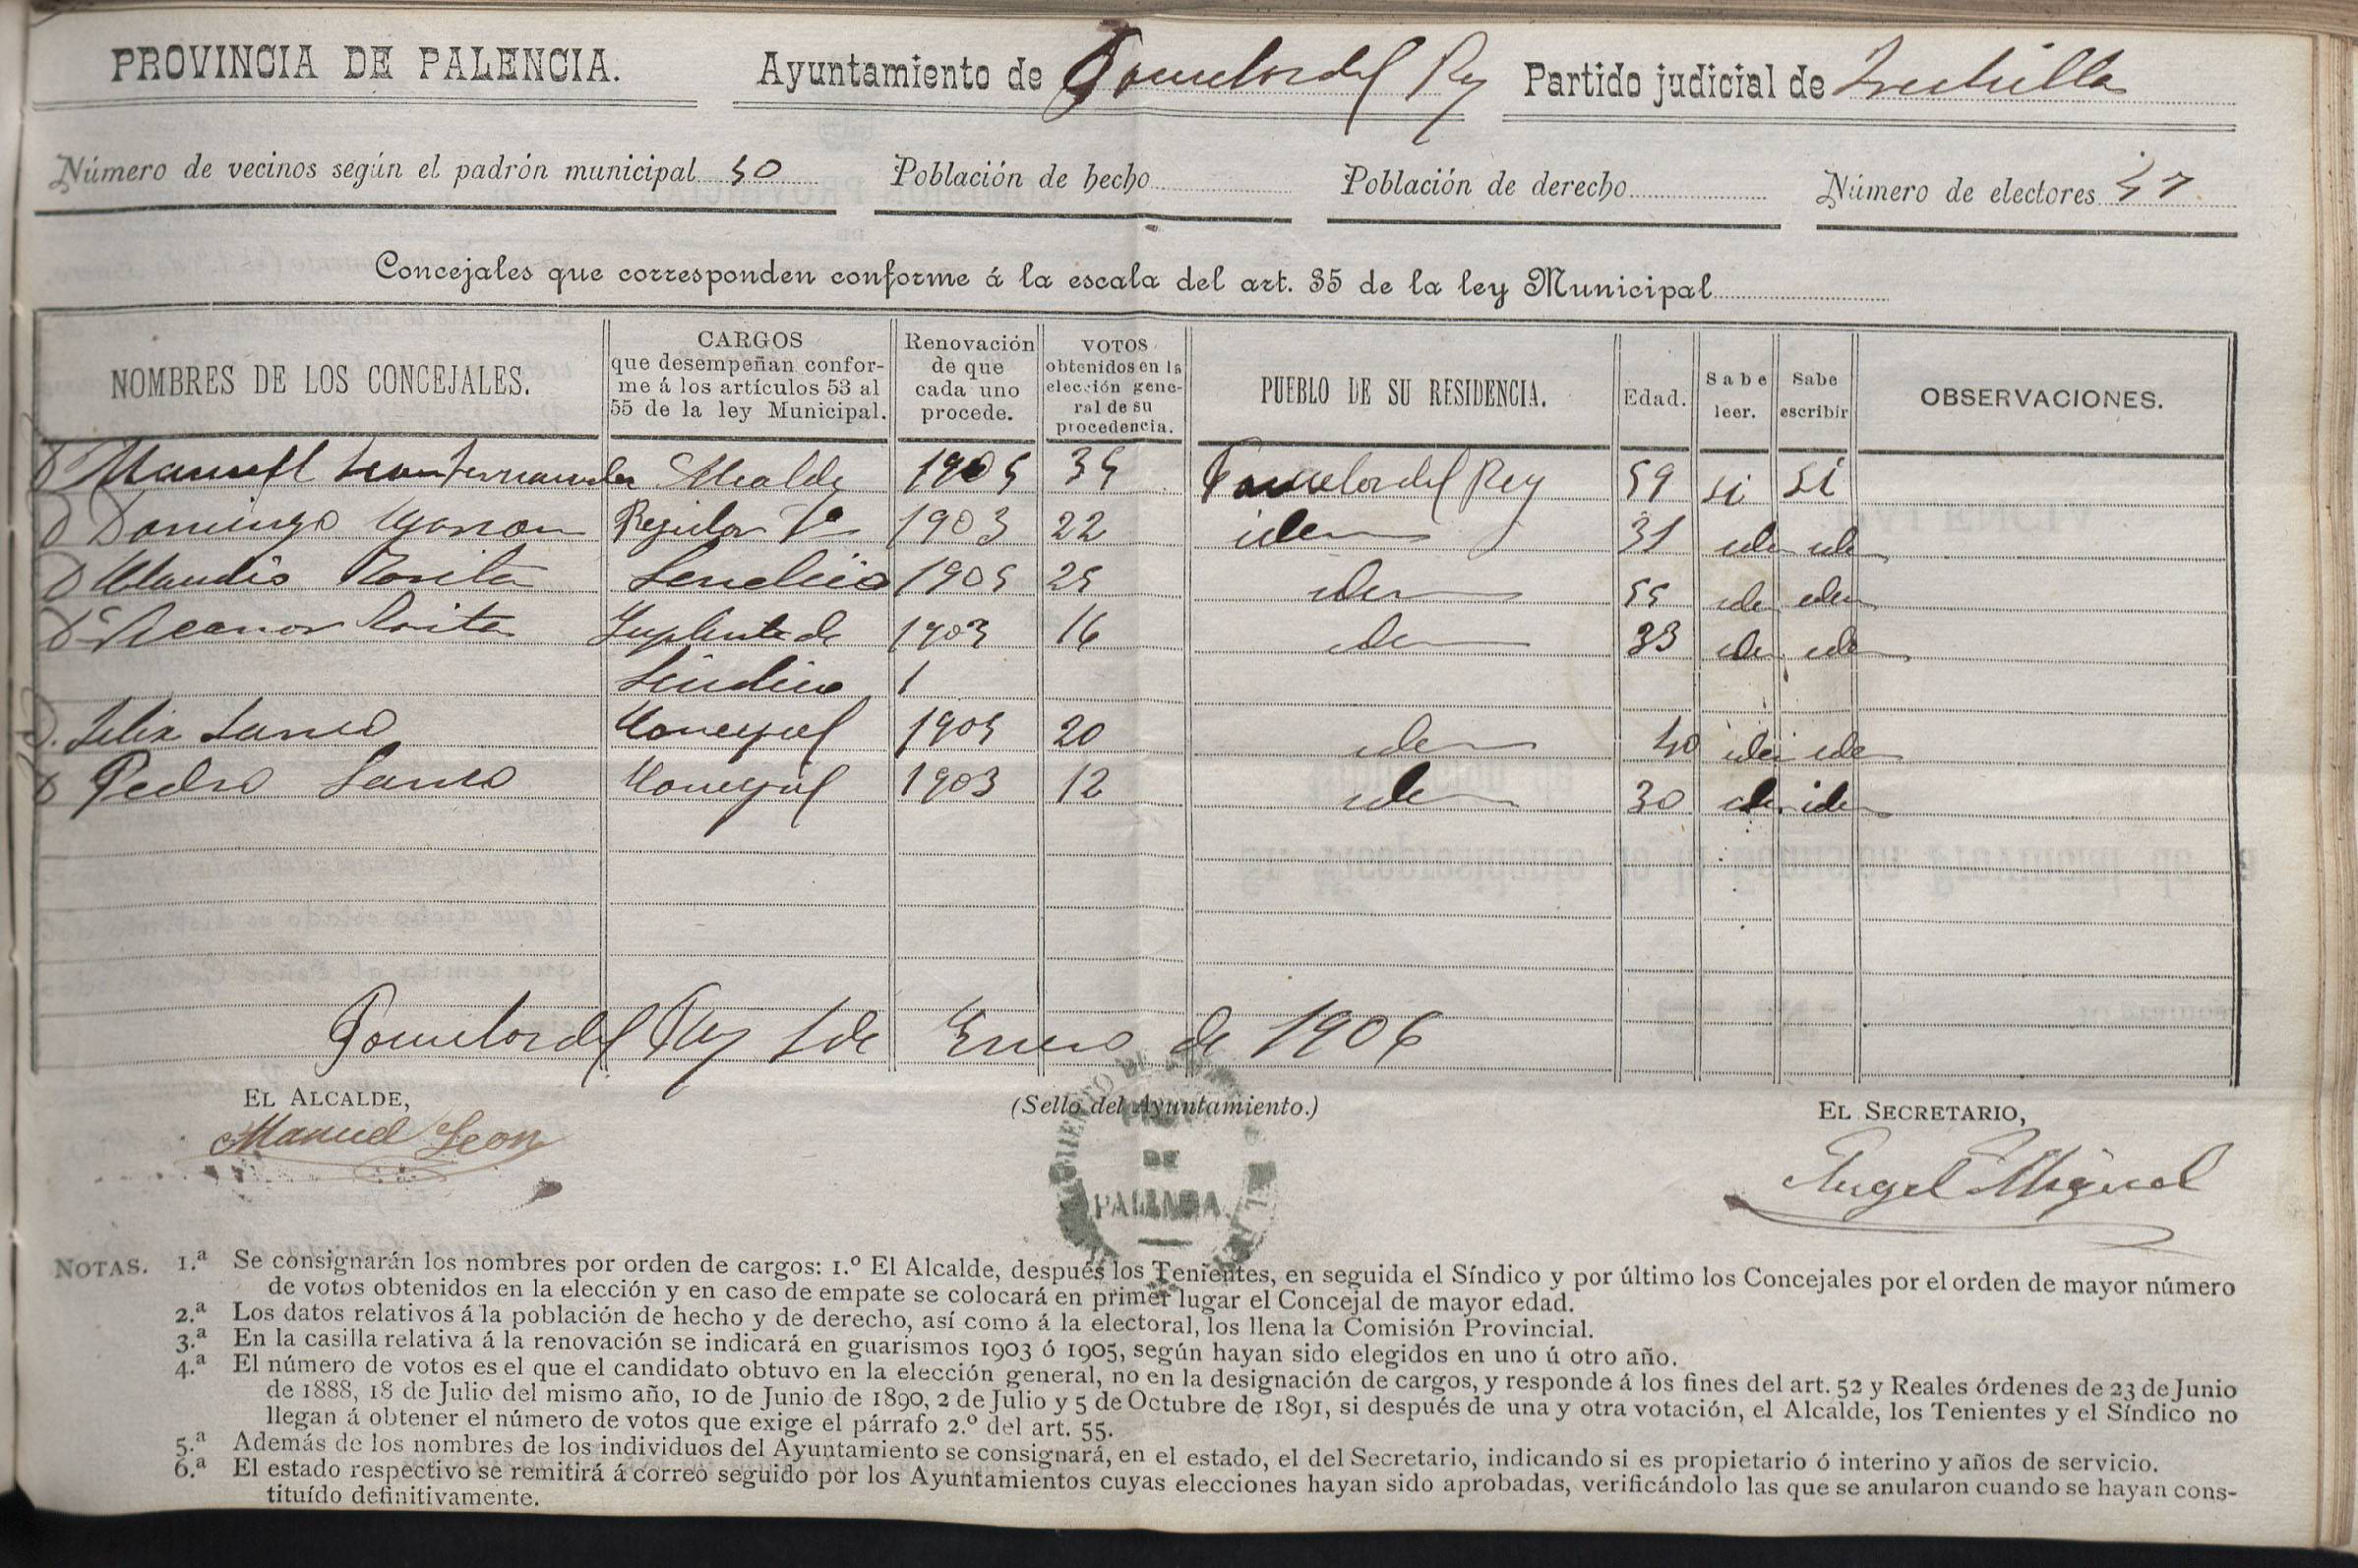 PROVINCIA DE PALENCIA. Ayuntamiento de del Rey Partido judicial de
Número de vecinos según el padrón municipal 50 Población de hecho Población de derecho Número de electores 47
Concejales que corresponden conforme á la escala del art. 35 de la ley Municipal
NOMBRES DE LOS CONCEJALES.
CARGOS
que desempeñan confor-
me á los artículos 53 al
55 de la ley Municipal.
Renovación
de que
cada uno
procede.
VOTOS
obtenidos en la
elección gene-
ral de su
procedencia.
PUEBLO DE SU RESIDENCIA.
Edad.
Sabe
leer.
Sabe
escribir
OBSERVACIONES.
D Manuel Leon Fernandez Alcalde 1905 35 del Rey 59 si si
D Domingo Regidor 1º 1903 22 idem 31 idem idem
D Claudio Sindico 1905 25 idem 55 idem idem
D Nicanor Suplente de 1903 16 idem 33 idem idem
Sindico
D. Felix Concejal 1905 20 idem 40 idem idem
D Pedro Concejal 1903 12 idem 30 idem idem
del Rey 1 de Enero de 1906
EL ALCALDE,
Manuel Leon
(Sello del Ayuntamiento.)
DE
PALENCIA
EL SECRETARIO,
Angel Miguel
NOTAS. 1.ª Se consignarán los nombres por orden de cargos: 1.º El Alcalde, después los Tenientes, en seguida el Síndico y por último los Concejales por el orden de mayor número
de votos obtenidos en la elección y en caso de empate se colocará en primer lugar el Concejal de mayor edad.
2.ª Los datos relativos á la población de hecho y de derecho, así como á la electoral, los llena la Comisión Provincial.
3.ª En la casilla relativa á la renovación se indicará en guarismos 1903 ó 1905, según hayan sido elegidos en uno ú otro año.
4.ª El número de votos es el que el candidato obtuvo en la elección general, no en la designación de cargos, y responde á los fines del art. 52 y Reales órdenes de 23 de Junio
de 1888, 18 de Julio del mismo año, 10 de Junio de 1890, 2 de Julio y 5 de Octubre de 1891, si después de una y otra votación, el Alcalde, los Tenientes y el Síndico no
llegan á obtener el número de votos que exige el párrafo 2.º del art. 55.
5.ª Además de los nombres de los individuos del Ayuntamiento se consignará, en el estado, el del Secretario, indicando si es propietario ó interino y años de servicio.
6.ª El estado respectivo se remitirá á correo seguido por los Ayuntamientos cuyas elecciones hayan sido aprobadas, verificándolo las que se anularon cuando se hayan cons-
tituído definitivamente.